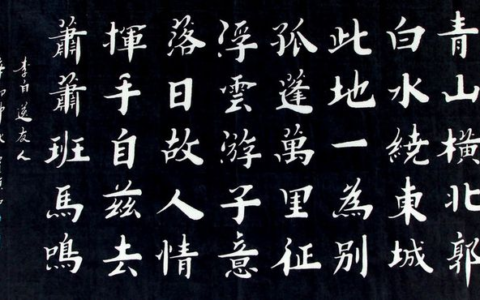 青山橫北郭
白水繞東城
此地一為別
孤蓬萬里征
浮雲游子意
落日故人情
揮手自茲去
蕭蕭班馬鳴
李白送友人